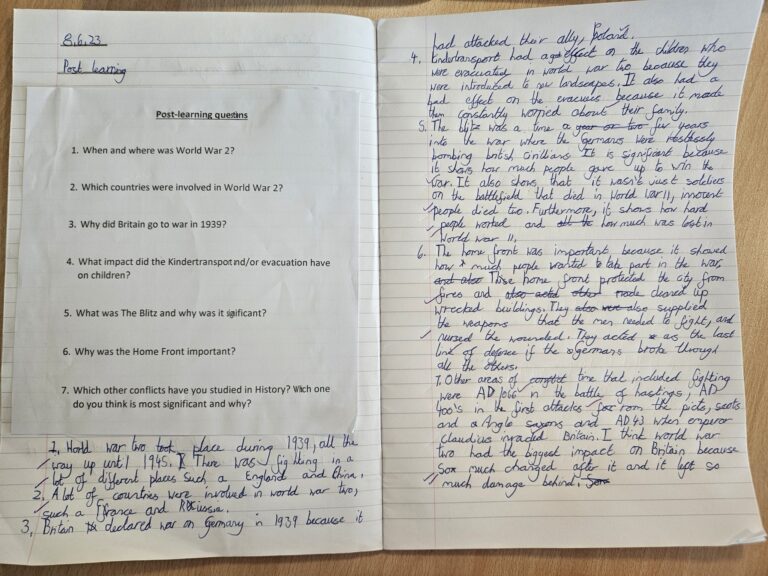 8.6.23
Post learning
Post-learning questions
1. When and where was World War 2?
2. Which countries were involved in World War 2?
3. Why did Britain go to war in 1939?
4. What impact did the Kindertransport and/or evacuation have
on children?
5. What was The Blitz and why was it significant?
6. Why was the Home Front important?
7. Which other conflicts have you studied in History? Which one
do you think is most significant and why?
1, World war two took place during 1939, all the
way up until 1945. There was fighting in a
lot of different places such a England and China.
2, A lot of countries were involved in world war two,
such a France and Russia.
3, Britain declared war on Germany in 1939 because it
had attacked their ally, Poland.
4, Kindertransport had a effect on the children who
were evacuated in world war two because they
were introduced to new landscapes. It also had a
bad effect on the evacuees because it made
them constantly worried about their family.
5. The blitz was a time a year or two few years
into the war where the germans were restlessly
bombing british civillians. It is significant because
it shows how much people gave up to win the
war. It also shows that it wasn't just soldiers
on the battlefield that died in World War II, innocent
people died two. Furthermore, it shows how hard
people worked and all the how much was lost in
World war II.
6. The home front was important because it showed
how much people wanted to take part in the war,
and also These home front protected the city from
fires and also acted other made cleared up
wrecked buildings. They also were also supplied
the weapons that the men needed to fight, and
nursed the wounded. They acted as the last
line of defence if the germans broke through
all the others.
7. Other areas of conflict time that included fighting
were AD 1066 in the battle of hastings, AD
400's in the first attacks from the picts, scots
and Anglo saxons and AD 43 when emperor
claudius invaded Britain. I think world war
two had the biggest impact on Britain because
so much changed after it and it left so
much damage behind.